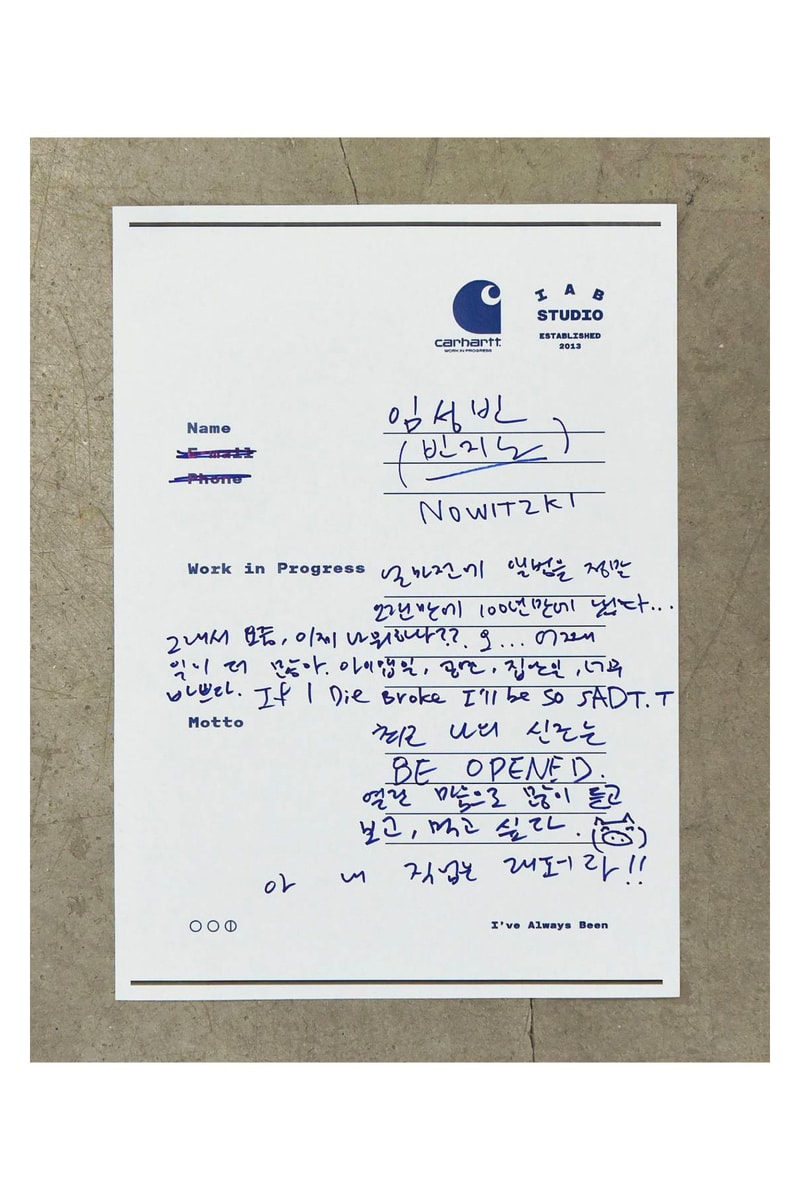 carhartt.
WORK IN PROGRESS
IAB
STUDIO
ESTABLISHED
2013
Name
임성빈
E-mail
(빈지노)
Phone
NOWITZKI
Work in Progress
얼마전에 앨범을 정말
오랜만에 100년만에 냈다...
그래서 보통, 이제 나 뭐하나??. 오... 어쩌면
일이 더 많아. 아이앱일, 공연, 집안일, 너무
바쁘다. If I Die Broke I'll be so SAD T.T
Motto
최근 나의 신조는
BE OPENED.
열린 마음으로 많이 듣고
보고, 먹고 싶다.
아 내 직업은 래퍼다!!
I've Always Been